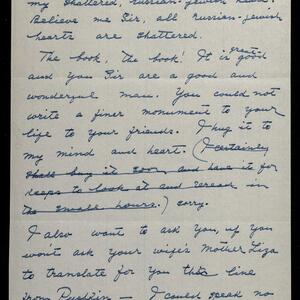 my shattered, Russian-Jewish heart.
Believe me Sir, all Russian-Jewish
hearts are shattered.
The book, the book! It is great-good
and you Sir are a good and
wonderful man. You could not
write a finer monument to your
life to your friends. I hug it to
my mind and heart. (I certainly
shall buy it soon and have it for
keeps to look at and reread in
the small hours.) sorry.
I also want to ask you, if you
won't ask your wife's Mother Liza
to translate for you this line
from Pushkin — I could speak no